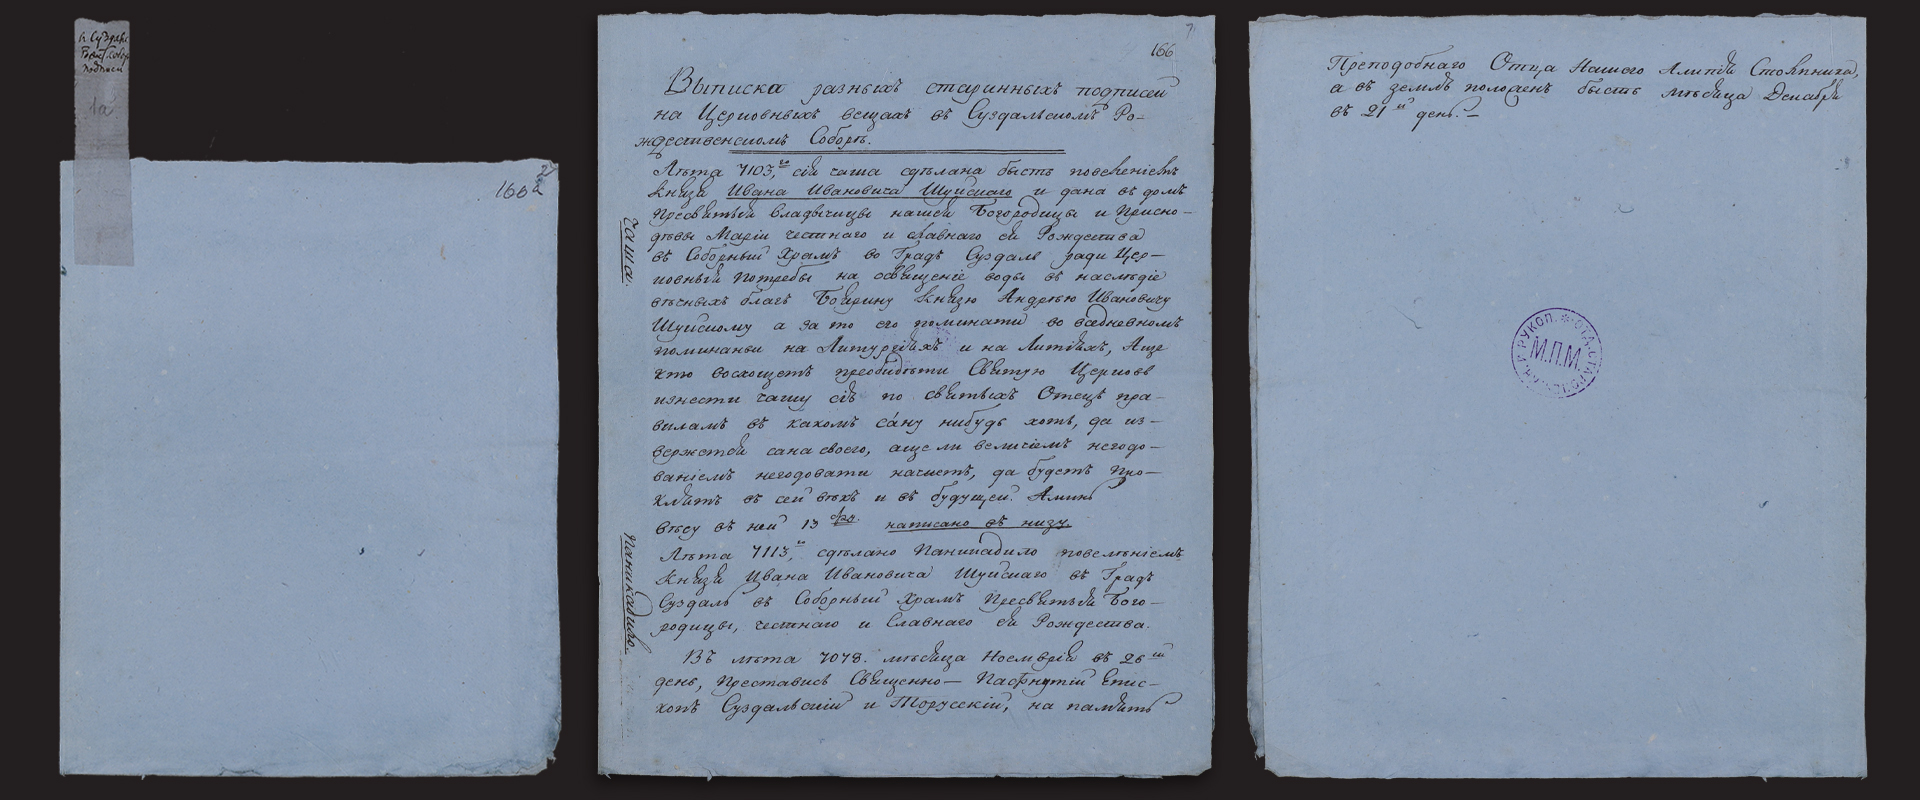 к Суздал
подписи
1а
166
2
7
166
Выписка разныхъ старинныхъ подписей
на Церковныхъ вещахъ въ Суздальскомъ Ро-
ждественскомъ Соборѣ.
Лѣта 7103,го сія чаша сдѣлана бысть повелѣніемъ
Князя Ивана Ивановича Шуйскаго и дана въ домъ
Пресвятыя Владычицы нашея Богородицы и Присно-
дѣвы Маріи честнаго и славнаго ея Рождества
въ Соборный Храмъ во Градъ Суздаль ради Цер-
ковныя Потребы на освященіе воды въ наслѣдіе
вѣчныхъ благъ Боярину Князю Андрею Ивановичу
Шуйскому а за то его поминати во вседневномъ
поминаньи на Литургіяхъ и на Литіяхъ, Аще
кто восхощетъ преобидѣти Святую Церковь
изнести чашу сію по святыхъ Отецъ пра-
виламъ въ какомъ са́ну нибудь хотя, да из-
вержется сана своего, аще ли величіемъ негодо-
ваніемъ негодовати начнетъ, да будетъ про-
клятъ въ сей вѣкъ и въ будущей. Аминь
вѣсу въ ней 13 написано въ низу.
Лѣта 7113,го сдѣлано Паникадило повелѣніемъ
Князя Ивана Ивановича Шуйскаго въ Градъ
Суздаль въ Соборный Храмъ Пресвятыя Бого-
родицы, честнаго и Славнаго ея Рождества.
Въ лѣта 7078. мѣсяца Ноемврія въ 26й
день, Преставися Священно- Пафнутій Епис-
копъ Суздальскій и Торусскій, на память
Чаша.
Паникадило.
Преподобнаго Отца Нашего Алипія Столпника,
а въ землѣ положенъ бысть мѣсяца Декабря
въ 21й день.-
РУКОП. * ОТД. СТАРО
М.П.М.